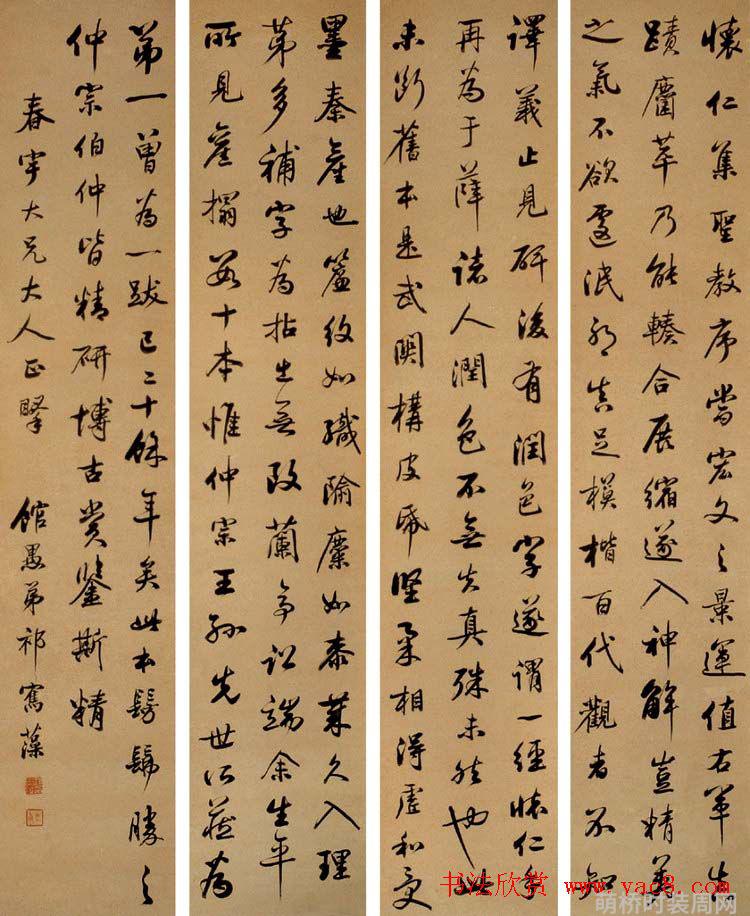 懷仁集聖教序當宏文之景運值右軍真
蹟麕萃乃能輳合展縮遂入神解豈精美
之氣不欲遽泯耶真足模楷百代觀者不知
譯義止見研後有潤色字遂謂一經懷仁手
再為于薛諸人潤色不無失真殊未然也此
未斷舊本是武關構皮紙堅柔相得虛和受
墨秦產也簾紋如織隃麋如桼業久入理
苐多補字為拈出無改蘭亭訟端余生平
所見舊搨數十本惟仲宗王孫先世所藏為
第一曾為一跋已二十餘年矣此本髣髴勝之
仲宗伯仲皆精研博古賞鑒斯精
春宇大兄大人正
館愚弟祁寯藻
书法欣赏 www.yac8.com
萌桥时装周网